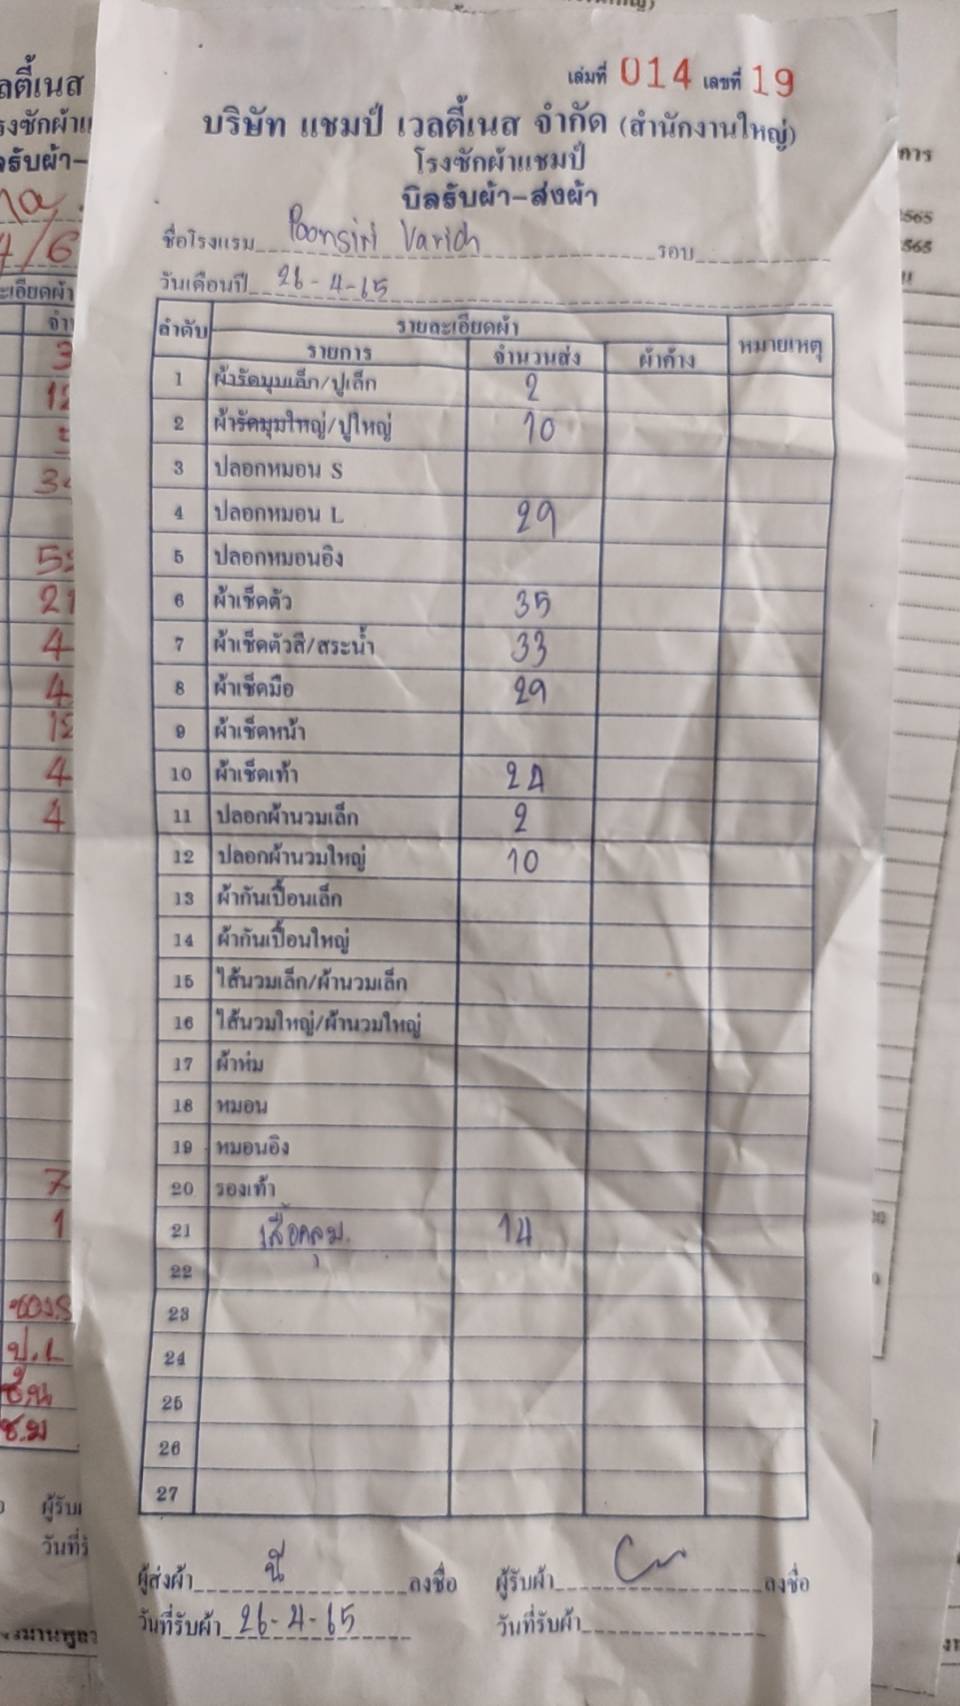 เล่มที่ 014 เลขที่ 19
บริษัท แชมป์ เวลตี้เนส จำกัด (สำนักงานใหญ่)
โรงซักผ้าแชมป์
บิลรับผ้า-ส่งผ้า
ชื่อโรงแรม Poonsiri Varich รอบ
วันเดือนปี 26-4-65
ลำดับ รายละเอียดผ้า หมายเหตุ
รายการ จำนวนส่ง ผ้าค้าง
1 ผ้ารัดมุมเล็ก/ปูเล็ก 2
2 ผ้ารัดมุมใหญ่/ปูใหญ่ 10
3 ปลอกหมอน S
4 ปลอกหมอน L 29
5 ปลอกหมอนอิง
6 ผ้าเช็ดตัว 35
7 ผ้าเช็ดตัวสี/สระน้ำ 33
8 ผ้าเช็ดมือ 29
9 ผ้าเช็ดหน้า
10 ผ้าเช็ดเท้า 24
11 ปลอกผ้านวมเล็ก 2
12 ปลอกผ้านวมใหญ่ 10
13 ผ้ากันเปื้อนเล็ก
14 ผ้ากันเปื้อนใหญ่
15 ไส้นวมเล็ก/ผ้านวมเล็ก
16 ไส้นวมใหญ่/ผ้านวมใหญ่
17 ผ้าห่ม
18 หมอน
19 หมอนอิง
20 รองเท้า
21 เสื้อคลุม. 14
22
23
24
25
26
27
ผู้ส่งผ้า นี ลงชื่อ ผู้รับผ้า ลงชื่อ
วันที่รับผ้า 26-4-65 วันที่รับผ้า